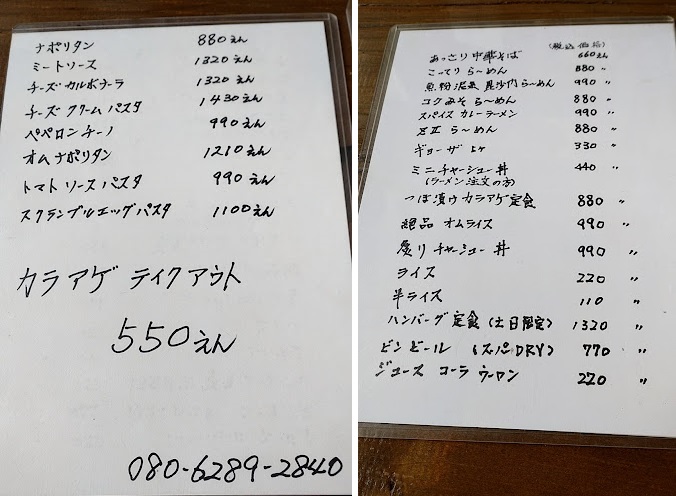 ナポリタン 880えん
ミートソース 1320えん
チーズカルボナーラ 1320えん
チーズクリームパスタ 1430えん
ペペロンチーノ 990えん
オムナポリタン 1210えん
トマトソースパスタ 990えん
スクランブルエッグパスタ 1100えん
カラアゲ テイクアウト
550えん
080-6289-2840
(税込価格)
あっさり中華そば 660えん
こってりら〜めん 880 〃
魚粉泥系 毘沙門ら〜めん 990 〃
コクみそら〜めん 880 〃
スパイスカレーラーメン 990 〃
ら〜めん 880 〃
ギョーザ 5ヶ 330 〃
ミニチャーシュー丼 440 〃
(ラーメン注文の方)
つぼ漬けカラアゲ定食 880 〃
絶品オムライス 990 〃
炙りチャーシュー丼 990 〃
ライス 220 〃
半ライス 110 〃
ハンバーグ定食(土日限定) 1320 〃
ビンビール (スーパーDRY) 770 〃
ジュース コーラ ウーロン 220 〃